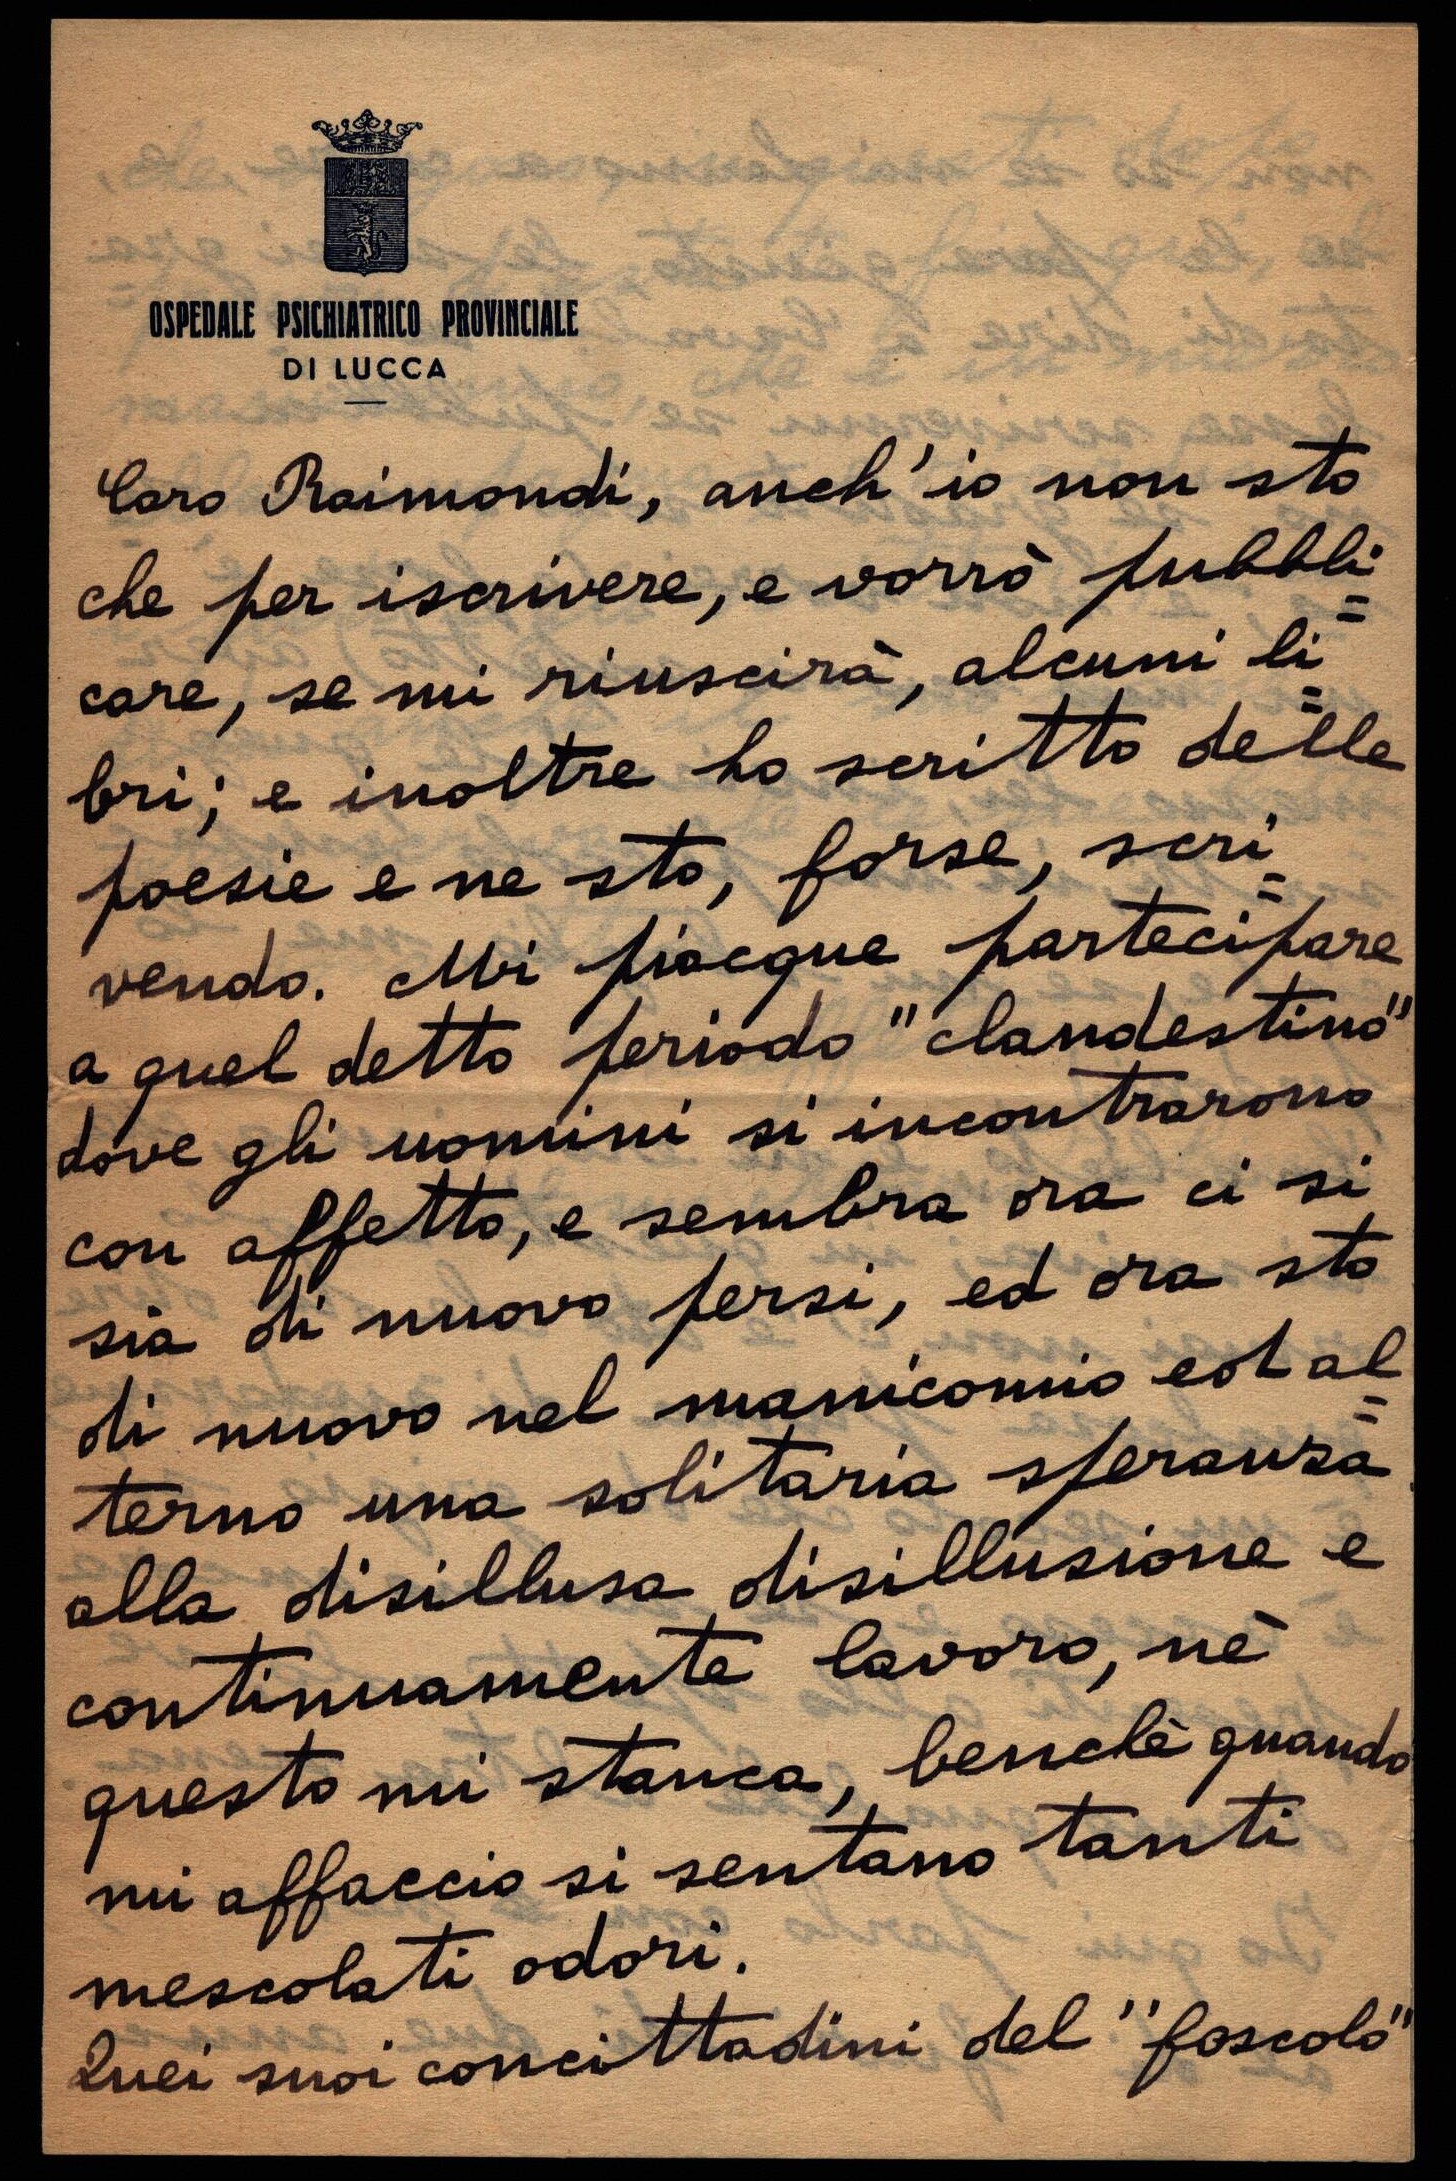 OSPEDALE PSICHIATRICO PROVINCIALE
DI LUCCA
Caro Raimondi, anch'io non sto
che per iscrivere, e vorrò pubbli=
care, se mi riuscirà, alcuni li=
bri; e inoltre ho scritto delle
poesie e ne sto, forse, scri=
vendo. Mi piacque partecipare
a quel detto periodo "clandestino"
dove gli uomini si incontrarono
con affetto, e sembra ora ci si
sia di nuovo persi, ed ora sto
di nuovo nel manicomio ed al=
terno una solitaria speranza
alla disillusa disillusione e
continuamente lavoro, nè
questo mi stanca, benchè quando
mi affaccio si sentano tanti
mescolati odori.
Quei suoi concittadini del "foscolo"